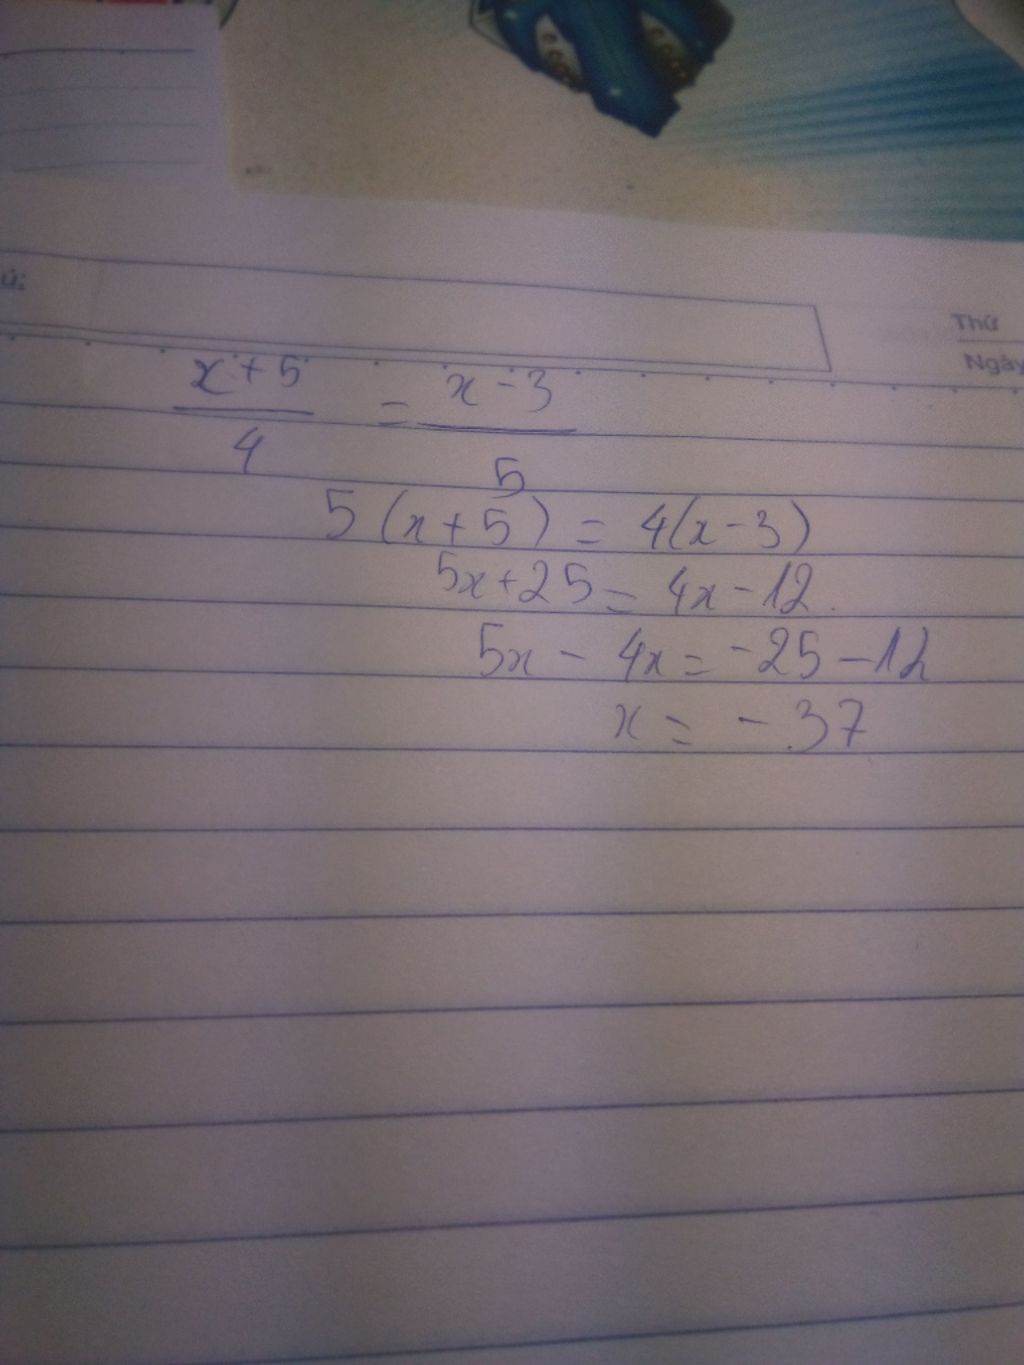 ứ:
Thứ
Ngày
x + 5 / 4 = x - 3 / 5
5 (x + 5) = 4(x - 3)
5x + 25 = 4x - 12.
5x - 4x = -25 - 12
x = - 37